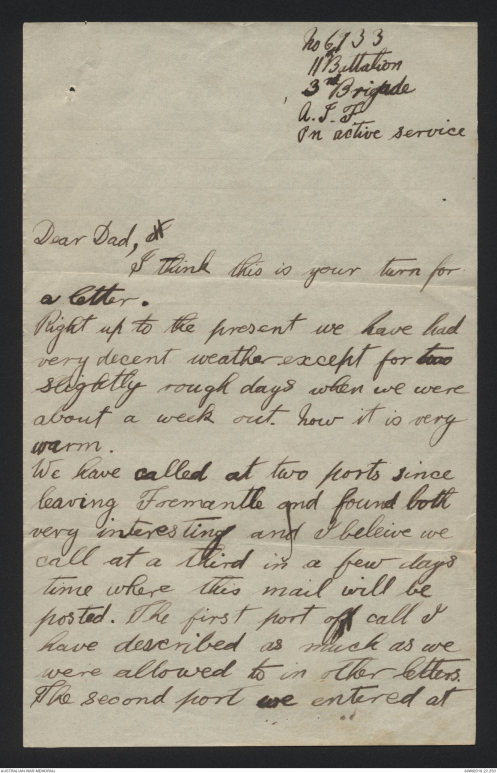 No 6733
11th Battalion
3rd Brigade
A.I.F
On active service
Dear Dad,
I think this is your turn for
a letter.
Right up to the present we have had
very decent weather except for two
slightly rough days when we were
about a week out. Now it is very
warm.
We have called at two ports since
leaving Fremantle and found both
very interesting and I beleive we
call at a third in a few days
time where this mail will be
posted. The first port of call I
have described as much as we
were allowed to in other letters.
The second port we entered at
AUSTRALIAN WAR MEMORIAL